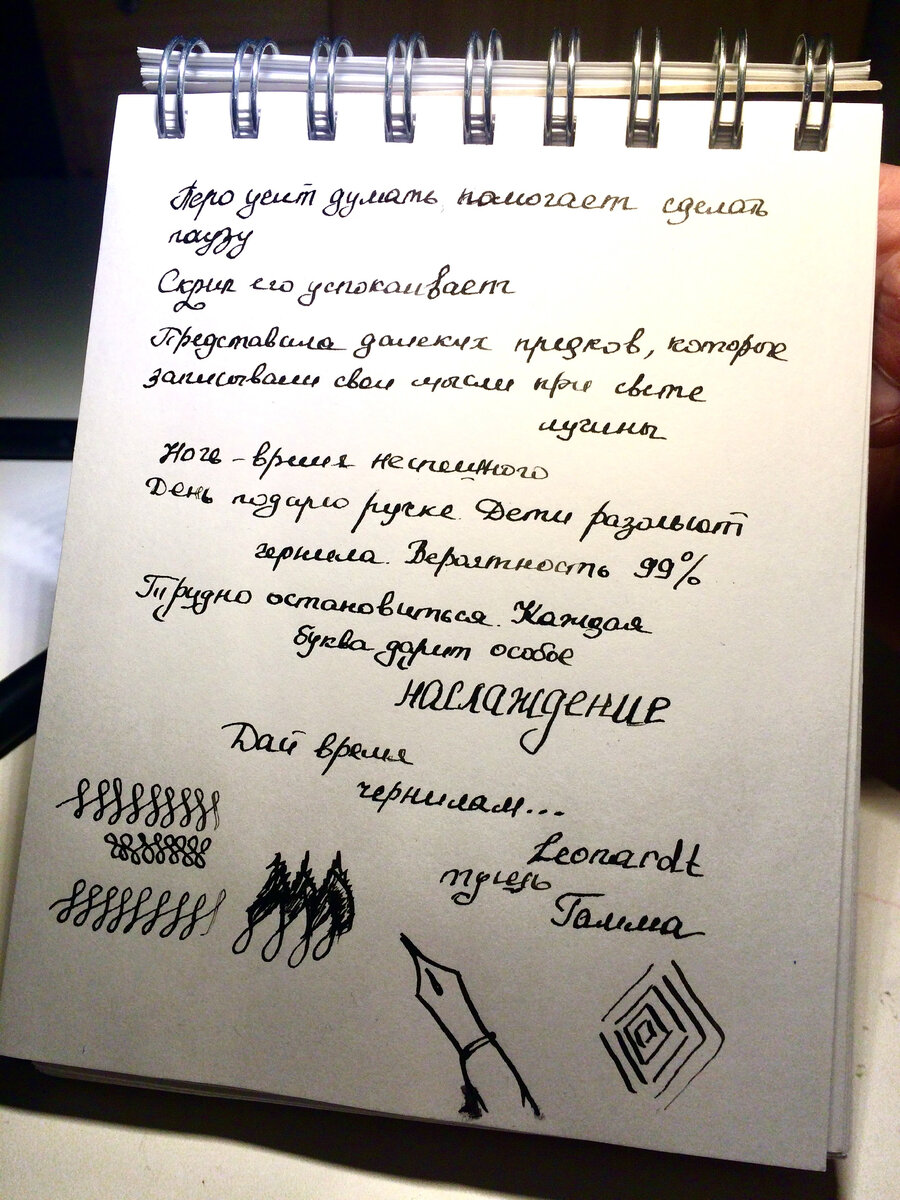 Перо учит думать, помогает сделать
паузу
Скрип его успокаивает
Представила далеких предков, которые
записывали свои мысли при свете
лучины
Ночь – время неспешного
День подарю ручке. Дети разольют
чернила. Вероятность 99%
Трудно остановиться. Каждая
буква дарит особое
наслаждение
Дай время
чернилам...
Leonardt
тушь
Гамма